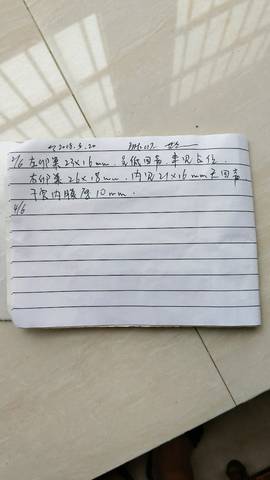 2018.5.20
2/6 左卵巢 23×16mm, 见低回节 率见占位.
右卵巢 26×18mm, 内见21×16mm无回节
子宫内膜厚10mm.
4/6